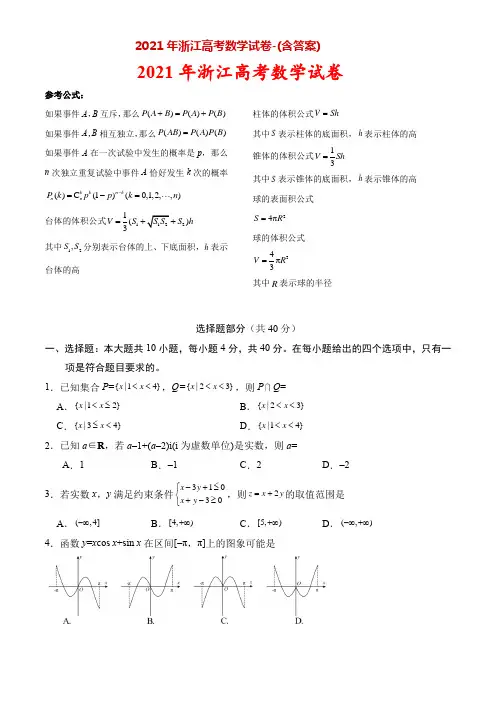 2021年浙江高考数学试卷-(含答案)
2021年浙江高考数学试卷
参考公式:
如果事件A,B互斥,那么P(A+B)=P(A)+P(B)
如果事件A,B相互独立,那么P(AB)=P(A)P(B)
如果事件A在一次试验中发生的概率是p,那么
n次独立重复试验中事件A恰好发生k次的概率
Pₙ(k)=Cₙᵏpᵏ(1-p)ⁿ⁻ᵏ(k=0,1,2,⋯,n)
台体的体积公式V=1/3(S₁+√(S₁S₂)+S₂)h
其中S₁,S₂分别表示台体的上、下底面积,h表示
台体的高
柱体的体积公式V=Sh
其中S表示柱体的底面积,h表示柱体的高
锥体的体积公式V=1/3Sh
其中S表示锥体的底面积,h表示锥体的高
球的表面积公式
S=4πR²
球的体积公式
V=4/3πR³
其中R表示球的半径
选择题部分(共40分)
一、选择题:本大题共10小题,每小题4分,共40分。在每小题给出的四个选项中,只有一
项是符合题目要求的。
1.已知集合P={x|1<x<4},Q={x|2<x<3},则P∩Q=
A.{x|1<x≤2} B.{x|2<x<3}
C.{x|3≤x<4} D.{x|1<x<4}
2.已知a∈R,若a–1+(a–2)i(i为虚数单位)是实数,则a=
A.1 B.–1 C.2 D.–2
3.若实数x,y满足约束条件{x-3y+1≤0 x+y-3≥0,则z=x+2y的取值范围是
A.(-∞,4] B.[4,+∞) C.[5,+∞) D.(-∞,+∞)
4.函数y=xcos x+sin x在区间[–π,π]上的图象可能是
y y y y
-π O π x -π O π x -π O π x -π O π x
A. B. C. D.